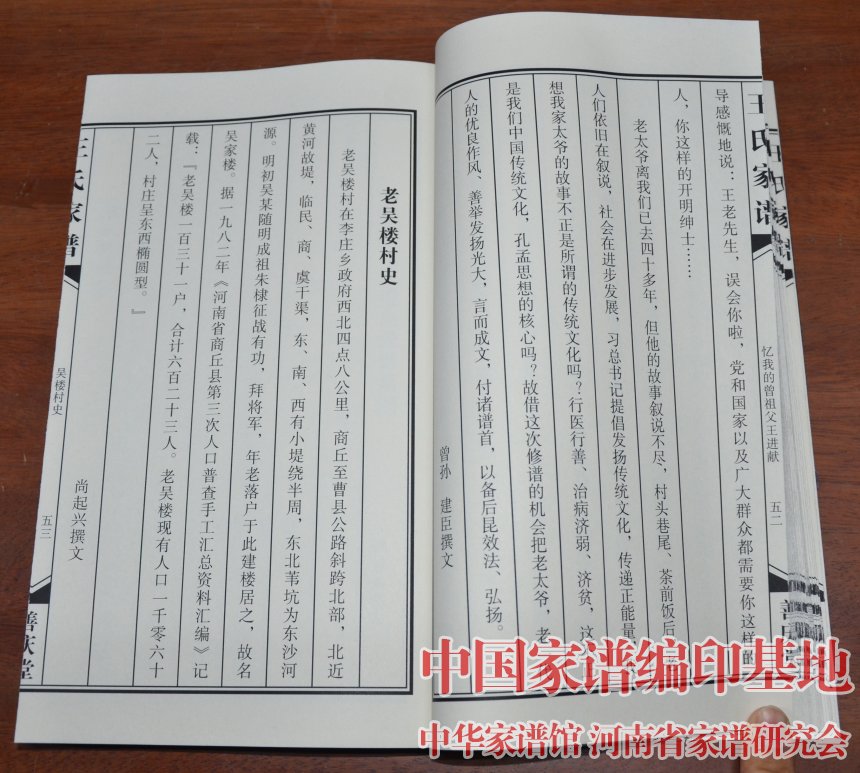 王氏家谱
忆我的曾祖父王进献
五二
导感慨地说：王老先生，误会你啦，党和国家以及广大群众都需要你这样的
人，你这样的开明绅士……
老太爷离我们已去四十多年，但他的故事叙说不尽，村头巷尾、茶前饭后
人们依旧在叙说，社会在进步发展，习总书记提倡发扬传统文化，传递正能量，
想我家太爷的故事不正是所谓的传统文化吗？行医行善、治病济弱、济贫，这
是我们中国传统文化，孔孟思想的核心吗？故借这次修谱的机会把老太爷，老
人的优良作风、善举发扬光大，言而成文，付诸谱首，以备后昆效法、弘扬。
曾孙 建臣撰文
老吴楼村史
老吴楼村在李庄乡政府西北四点八公里，商丘至曹县公路斜跨北部，北近
黄河故堤，临民、商、虞干渠，东、南、西有小堤绕半周，东北苇坑为东沙河
源。明初吴某随明成祖朱棣征战有功，拜将军，年老落户于此建楼居之，故名
吴家楼。据一九八二年《河南省商丘县第三次人口普查手工汇总资料汇编》记
载：『老吴楼一百三十一户，合计六百二十三人。老吴楼现有人口一千零六十
二人，村庄呈东西椭圆型。』
尚起兴撰文
王氏家谱
吴楼村史
五三
善庆堂
中国家谱编印基地
中华家谱馆 河南省家谱研究会